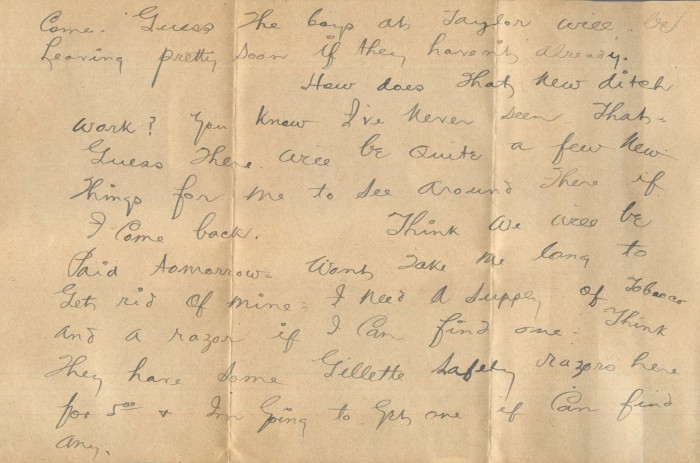 Come. Guess The boys at Taylor will be
Leaving pretty soon if they haven't already.
How does That New ditch
work? You know I've Never seen That-
Guess There will be Quite a few New
Things for me to See around There if
I Come back. Think we will be
Paid Tomorrow- Wont Take me long to
Get rid of mine- I Need a Supply of Tobacco
and a razor if I Can find one- Think
They have Some Gillette Safety razors here
for 5⁰⁰ & Im Going to Get one if Can find
any.